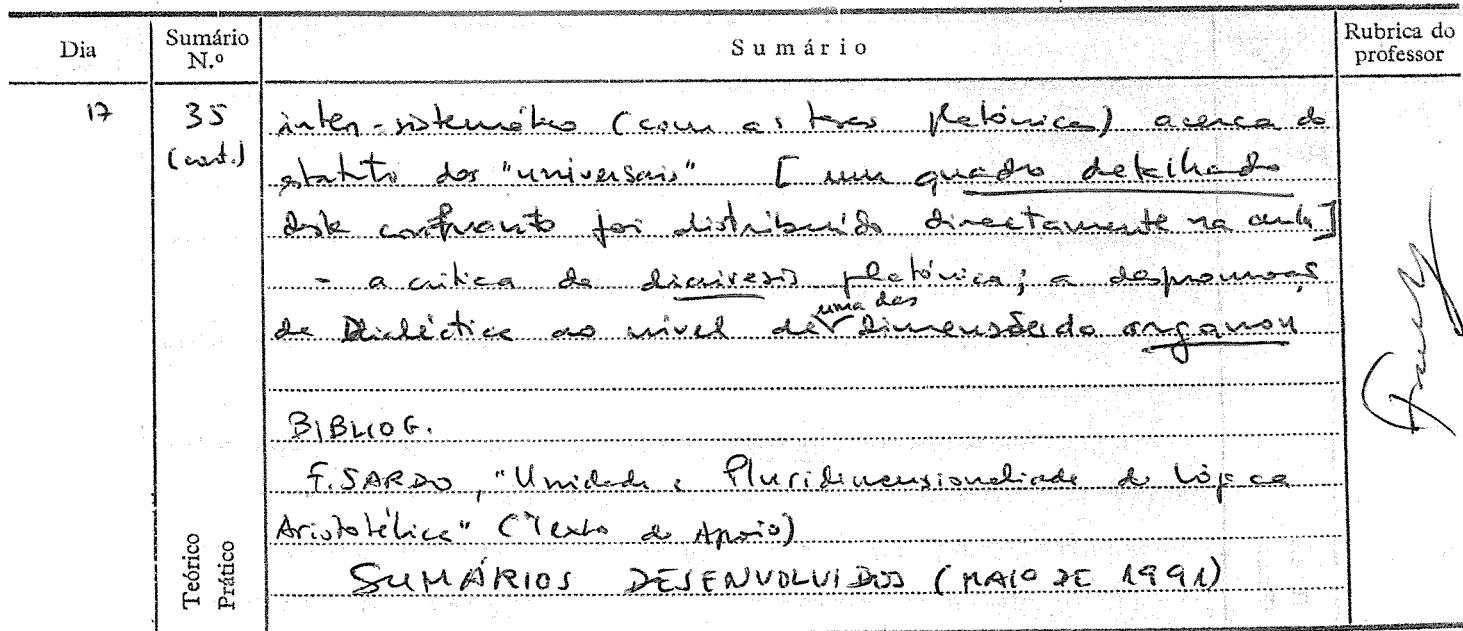 Dia Sumário N.º Sumário Rubrica do professor
17 35 inter-sistemático (com as teses platónicas) acerca do
(cont.) estatuto dos "universais" [um quadro detalhado
deste confronto foi distribuído directamente na aula]
- a crítica da diairesis platónica; a despromoção
da Dialéctica ao nível de uma das dimensões do organon
BIBLIOG.
F. SARDO, "Unidade e Pluridimensionalidade da Lógica
Aristotélica" (Texto de Apoio)
SUMÁRIOS DESENVOLVIDOS (MAIO DE 1991)
Teórico
Prático